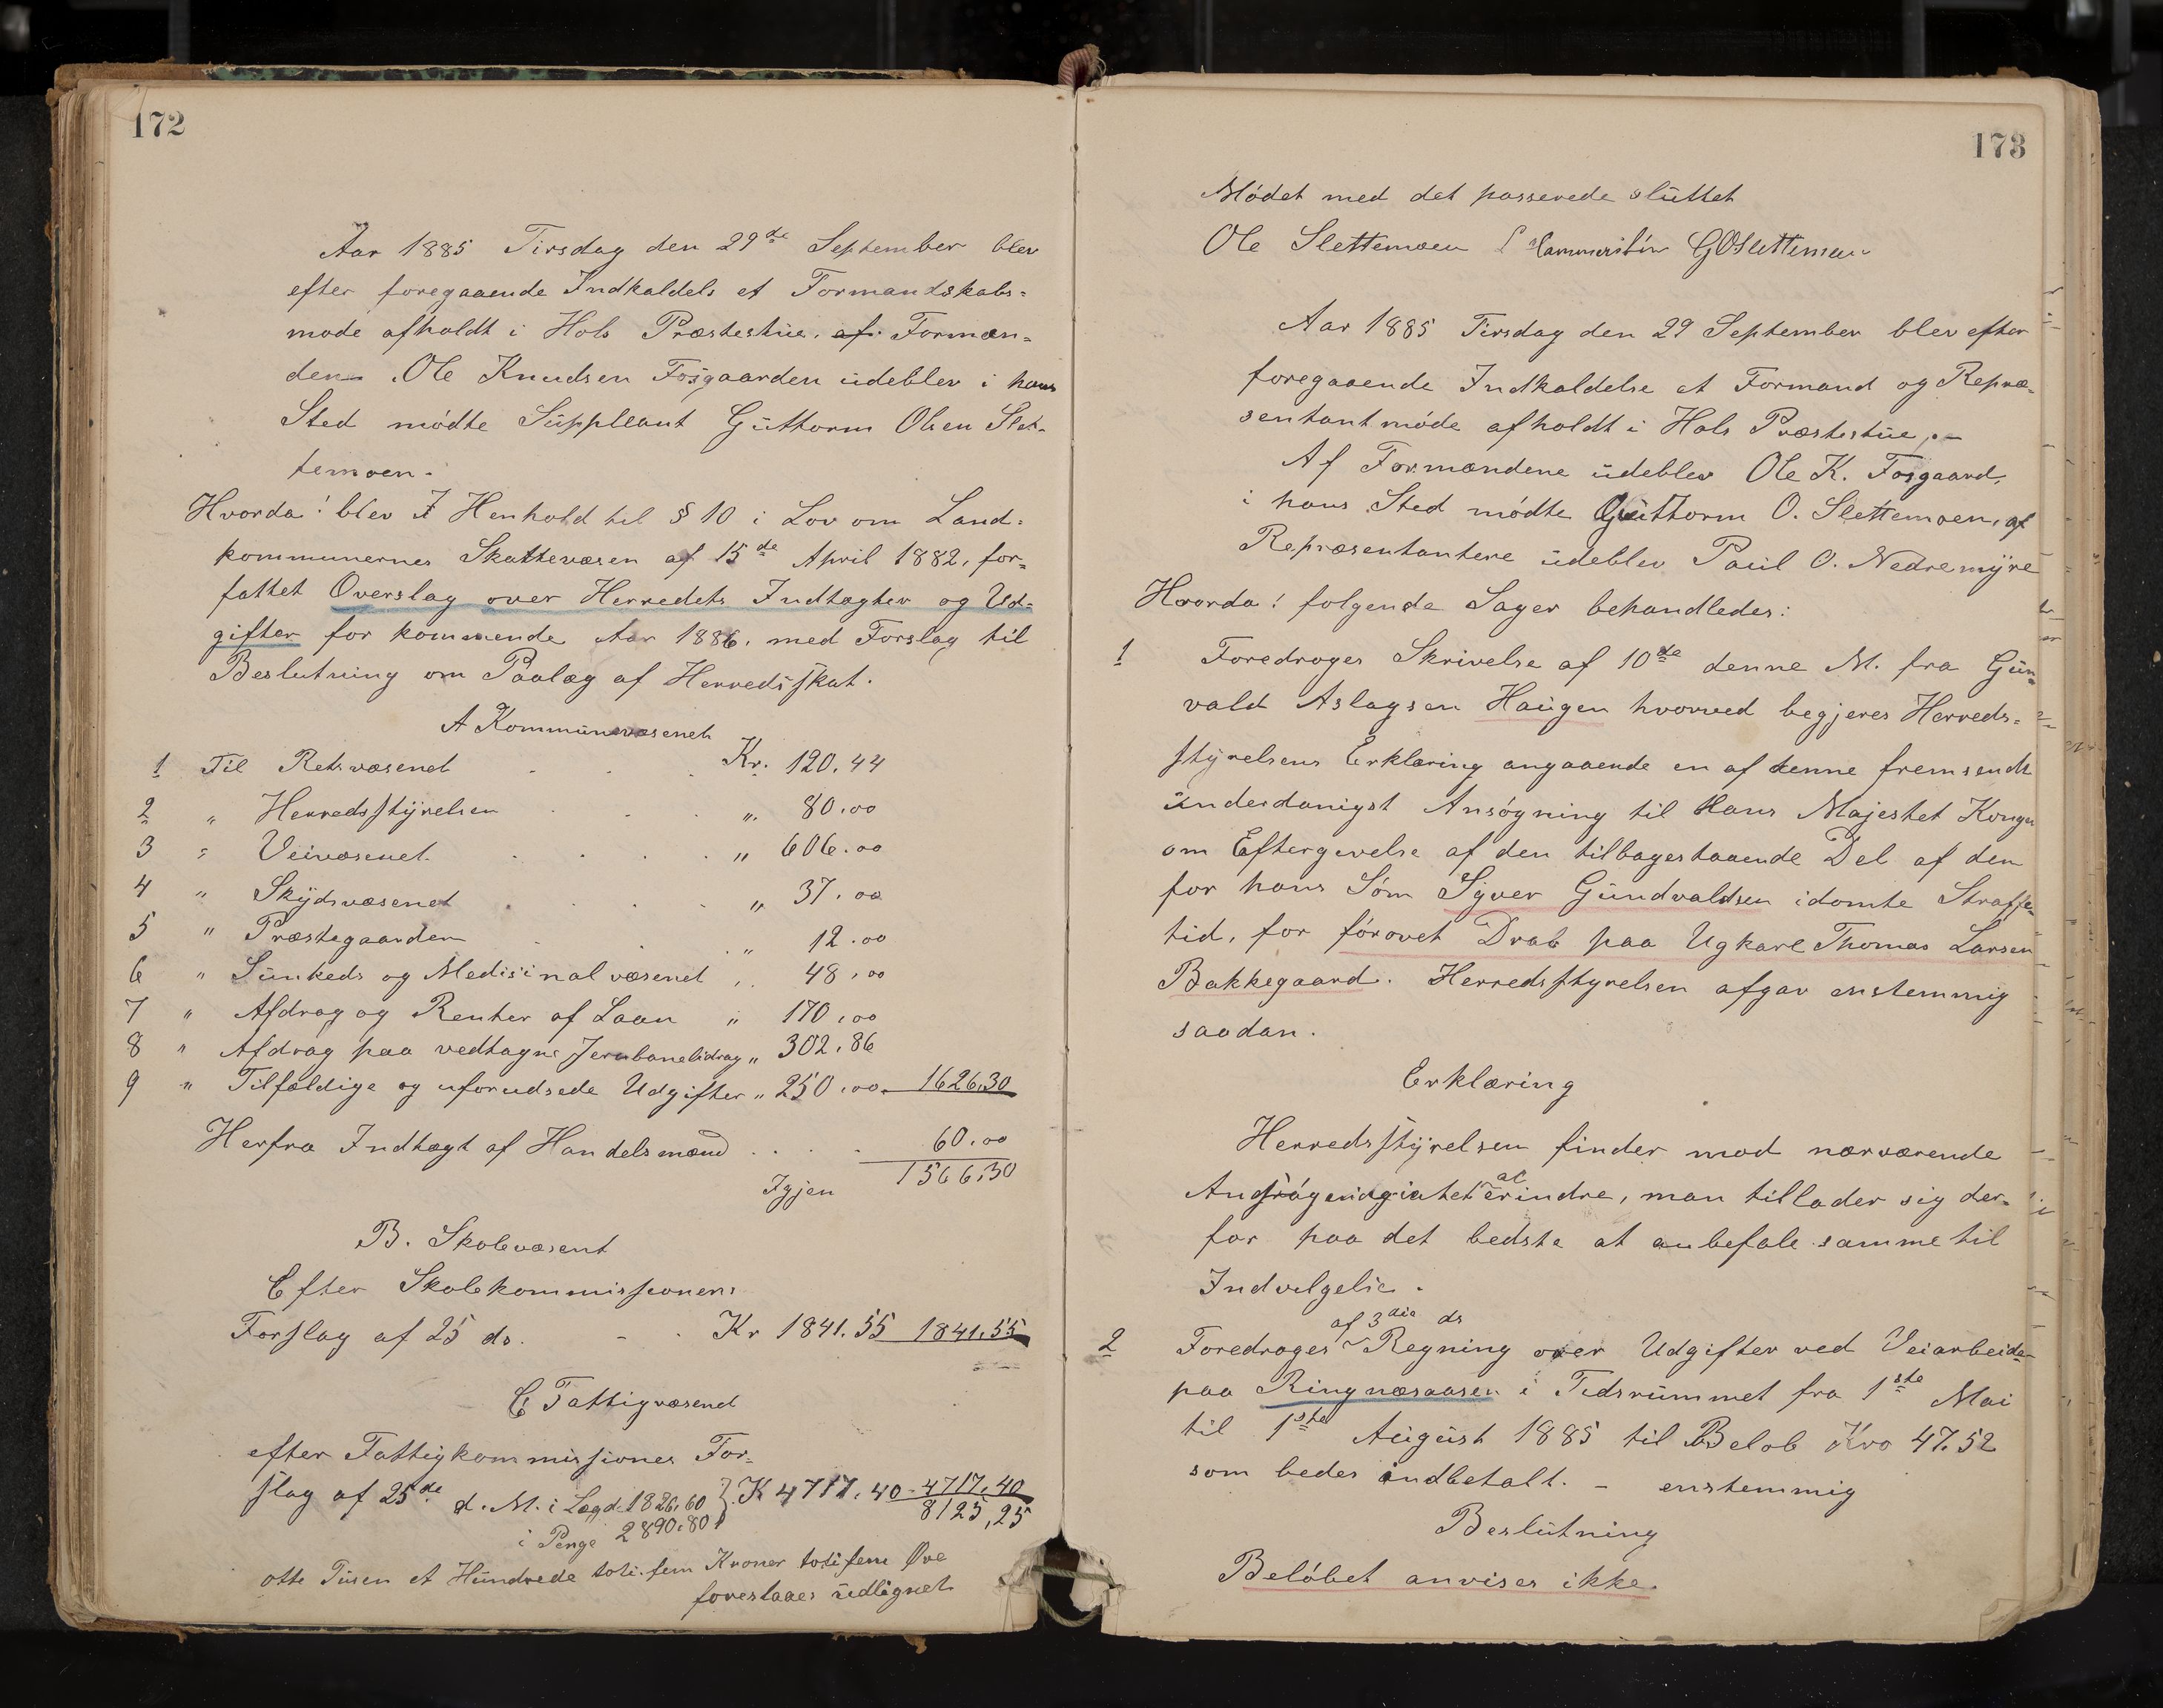 172
Aar 1885 Tirsdag den 29de September blev
efter foregaaende Indkaldels et Formandskabs=
møde afholdt i Hols Præstestue. af. Formæn=
den Ole Knudsen Fosgaarden udeblev i hans
Sted mødte Suppleant Guttorm Olsen Slet-
temoen.
Hvorda! blev I Henhold til § 10 i Lov om Land=
kommunernes Skattevæsen af 15de April 1882, for=
fattet Overslag over Herredets Indtægter og Ud=
gifter for kommende Aar 1886, med Forslag til
Beslutning om Paalæg af Herredsskat.
A Kommunevæsenet
1 Til Retsvæsenet Kr. 120.44
2 " Herredsstyrelsen " 80.00
3 " Veivæsenet " 606.00
4 " Skydsvæsenet " 37.00
5 " Præstegaarden " 12.00
6 " Sunheds og Medisinalvæsenet " 48.00
7 " Afdrag og Renter af Laan " 170.00
8 " Afdrag paa vedtagne Jernbanebidrag " 302.86
9 " Tilfældige og uforudsede Udgifter " 250.00 1626.30
Herfra Indtægt af Handelsmænd 60.00
Igjen 1566.30
B. Skolevæsent
Efter Skolekommissionens
Forslag af 25 ds. Kr 1841.55 1841.55
C Fattigvæsend
efter Fattigkommissiones For=
slag af 25de d. M. i Lægd 1826.60 } K 4717.40 - 4717.40
i Penge 2890.80 8125,25
otte Tusen et Hundrede toti fem Kroner totifem Øre
foreslaaes udlignet
173
Mødet med det passerede sluttet
Ole Slettemoen L Hammersbøn GOSlettemoen
Aar 1885 Tirsdag den 29 September blev efter
foregaaende Indkaldelse et Formand og Repræ=
sentantmøde afholdt i Hols Præstestue.-
Af Formændene udeblev Ole K. Fosgaard,
i hans Sted mødte Guttorm O. Slettemoen, af
Repræsentantere udeblev Paul O. Nedremyre
Hvorda! følgende Sager behandledes:
1 Foredroges Skrivelse af 10de denne M. fra Gun=
vald Aslagsen Haugen hvorved begjeres Herreds=
styrelsens Erklæring angaaende en af denne fremsendt
underdanigst Ansøgning til Hans Majestet Kongen
om Eftergivelse af den tilbagestaaende Del af den
for hans Søm Syver Gundvaldsen idømte Straffe=
tid, for førøvet Drab paa Ugkarl Thomas Larsen
Bakkegaard. Herredsstyrelsen afgav enstemmig
saadan.
Erklæring
Herredsstyrelsen finder mod nærværende
Andragende intet at erindre, man tillader sig der=
for paa det bedste at anbefale samme til
Indvilgelse.
af 3die ds
2 Foredroges Regning over Udgifter ved Veiarbeide
paa Ringnæsaasen i Tidsrummet fra 1ste Mai
til 1ste August 1885 til Beløb Kro 47.52
som bedes indbetalt. - enstemmig
Beslutning
Beløbet anvises ikke.